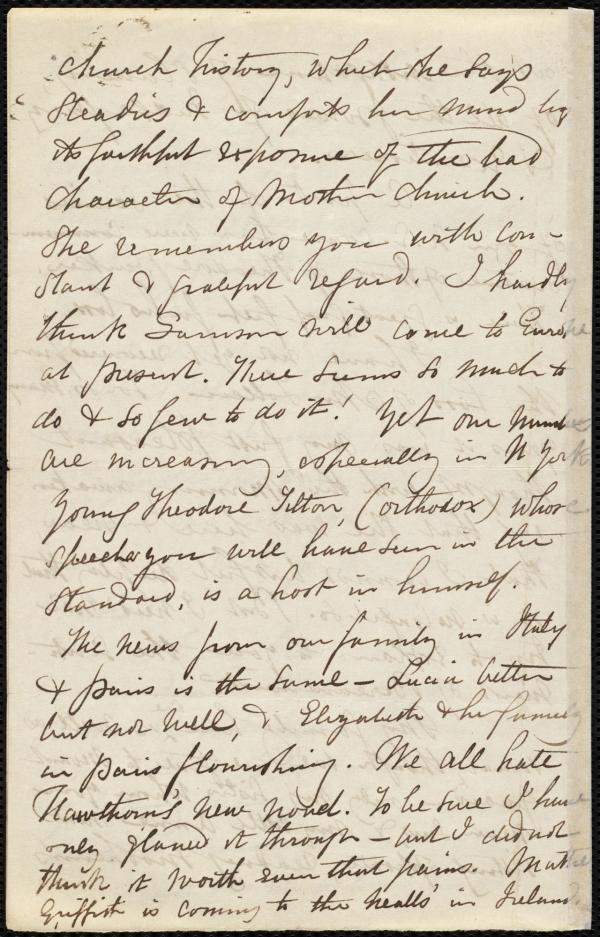 church history, which she says
steadies & comforts her mind by
its faithful exposure of the bad
character of Mother Church.
She remembers you with con-
stant & grateful regard. I hardly
think Samson will come to Euro
at present. There seems so much to
do & so few to do it! Yet our
are increasing, especially in N York
Young Theodore Tilton, (orthodox) whose
speeches you will have seen in the
Standard, is a host in himself.
The news from our family in Italy
& Paris is the same - Lucia better
but not well, & Elizabeth & her family
in Paris flourishing. We all hate
Hawthorn's new novel. To be sure I have
only glanced it through - but I did not
think it worth even that pains. Matt
Griffith is coming to the Nealls' in Ireland.